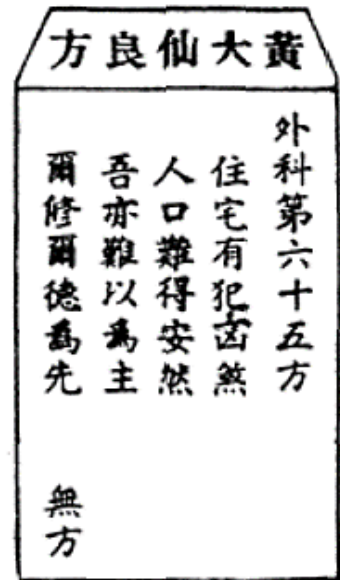 黃大仙良方
外科第六十五方
住宅有犯凶煞
人口難得安然
吾亦難以爲主
爾修爾德爲先 無方